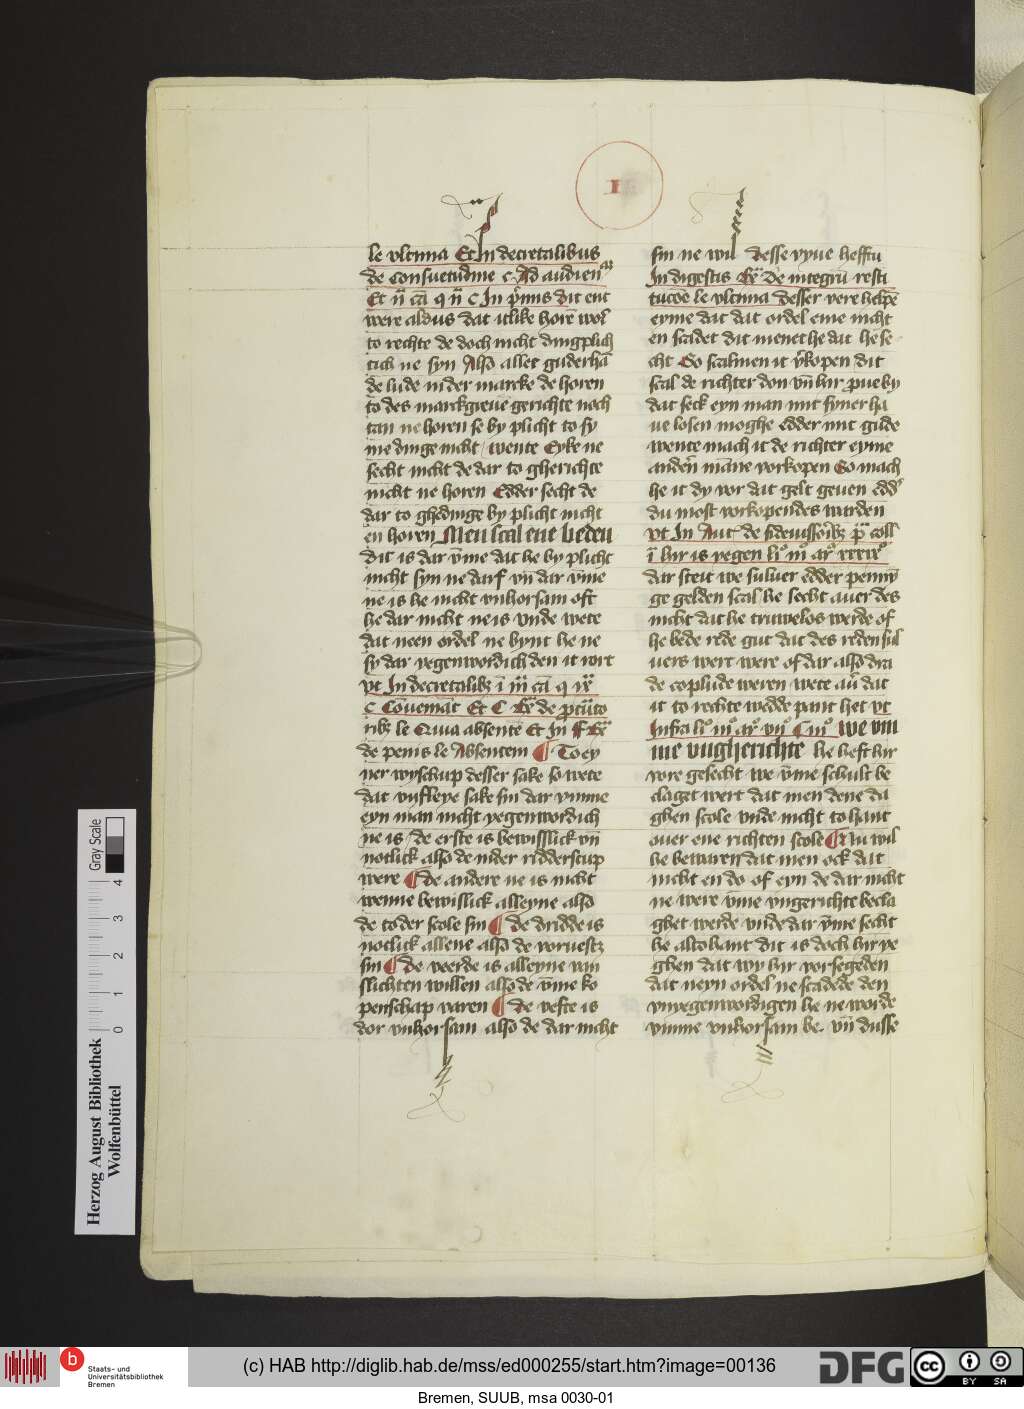 I
le vltima Et In decretalibus
de consuetudine c. Ad audien
Et
were aldus dat itlike horē wol
to rechte de doch nicht dingplich
tich ne syn Also alle guderhā
de lude in der marcke de horen
to des marckgreue gerichte noch
tan ne horen se by plicht to sy
me dinge nicht wente Eyke ne
secht nicht de dar to gherichte
nicht ne horen Edder secht de
dar to ghedinge by plicht nicht
en horen Men scal ene beden
dit is dar vm̄e dat he by plicht
nicht syn ne darf vn̄ dar vm̄e
ne is he nicht vnhorsam oft
he dar nicht ne is vnde wete
dat neen ordel ne bynt he ne
sy dar yegenwordich den it vort
vt In decretalibȝ
de penis le Absentem ¶ To ey
ner wyschup desser sake so wete
dat vijfleye sake sin dar vmme
eyn man nicht yegenwordich
ne is / de erste is bewisslick vn̄
notlick also de in der ridderscup
were ¶ de andere ne is nicht
wenne bewislick alleyne also
de to der scole sin ¶ de dridde is
notlick allene also de voruestz
sin ¶ de veerde is alleyne van
slichten willen also de vm̄e ko
penschap varen ¶ de vefte is
dor vnhorsam also de dar nicht
sin ne wil desse vyue hefftu
In digestis De integrū resti
tucōe le vltima desser vere helpē
eyme dat dat ordel eme nicht
en scadet dit menet he dat he se
cht So scalmen it v̄kopen / dit
scal de richter don vn̄ hir prueby
dat seck eyn man mit syner ha
ue losen moghe edder mit gude
wente mach it de richter eyme
anderē mānne vorkopen So mach
he it dy vor dat gelt geuen edd'
du most vorkopendes warden
vt In Aut' de
ī hir is yegen li° iii° ar°
dar steit we suluer edder pennī
ge gelden scal he secht auer des
nicht dat he truwelos werde of
he bede rede gut dat des reden sul
uers wert were of dar also dra
de coplude weren wete au' dat
it to rechte wedde pant het vt
Infra li° iii° ar° vn° We vm
me vngherichte he heft hir
vore gesecht we vm̄e schult be
claget wert dat men dene da
ghen scole vnde nicht to hant
ouer ene richten scole ¶ Nu wil
he bewaren dat men ock dat
nicht en do of eyn de dar nicht
ne were vm̄e vngerichte becla
ghet werde vnde dar vm̄e secht
he altohant dit is doch hir ye
ghen dat wy hir vorsegeden
dat neyn ordel ne scadede den
vnyegenwordigen he ne worde
vmme vnhorsam be. vn̄ dusse
Herzog August Bibliothek
Wolfenbüttel
0 1 2 3 4
Gray Scale
b
Staats- und
Universitätsbibliothek
Bremen
(c) HAB http://diglib.hab.de/mss/ed000255/start.htm?image=00136
DFG
cc BY SA
Bremen, SUUB, msa 0030-01